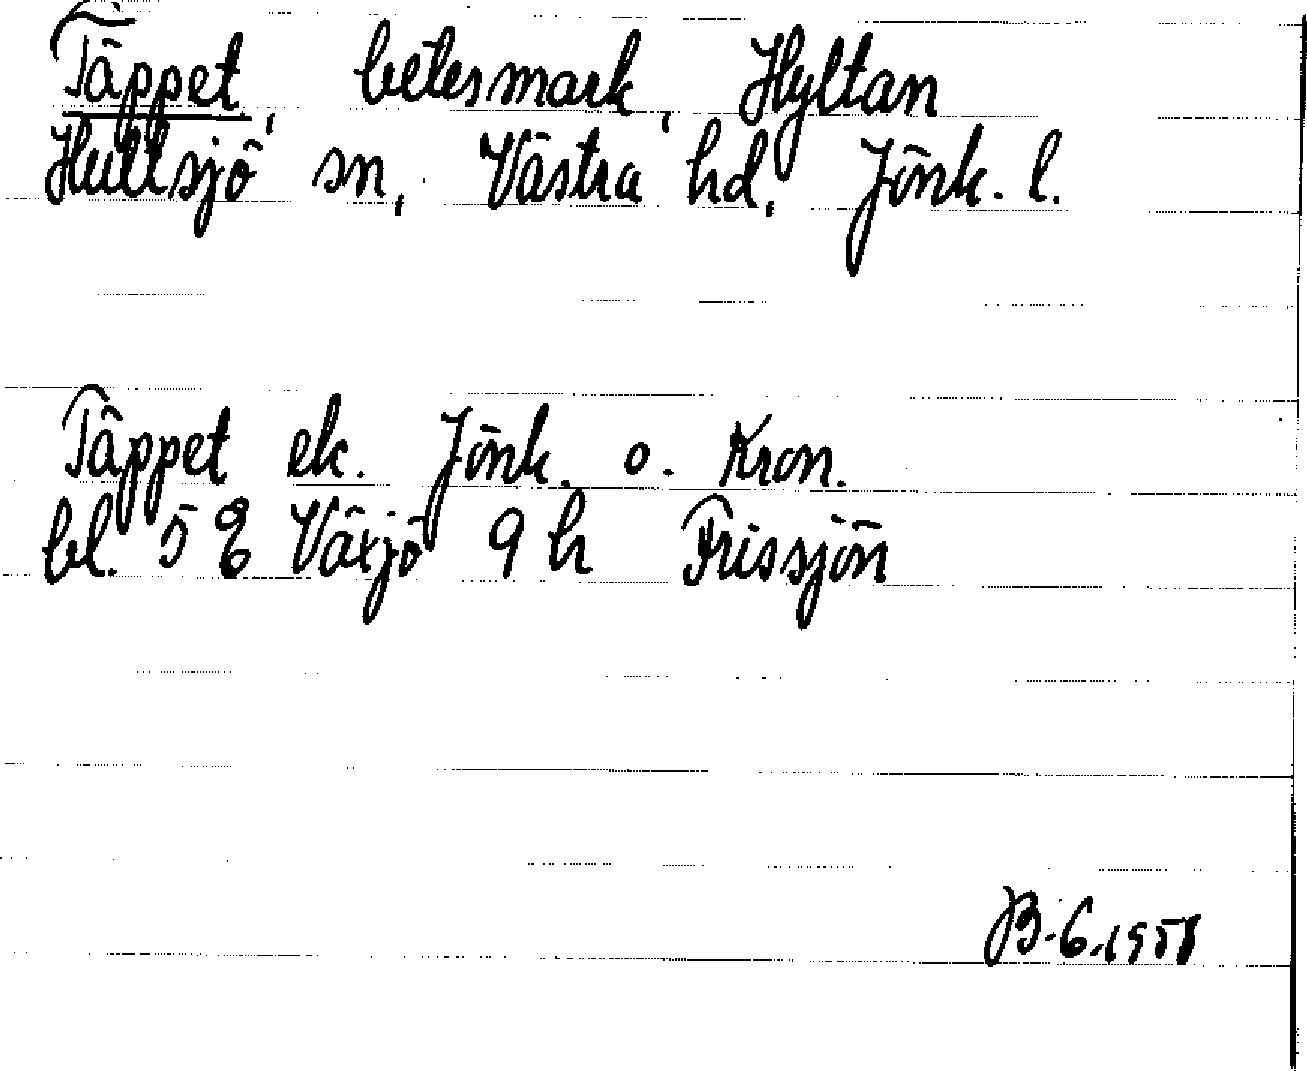 Täppet, betesmark, Hyltan
Hullsjö sn, Västra hd, Jönk. l.
Täppet ek. Jönk. o. Kron.
bl. 5 E Växjö 9 h Frissjön
B. G. 1958